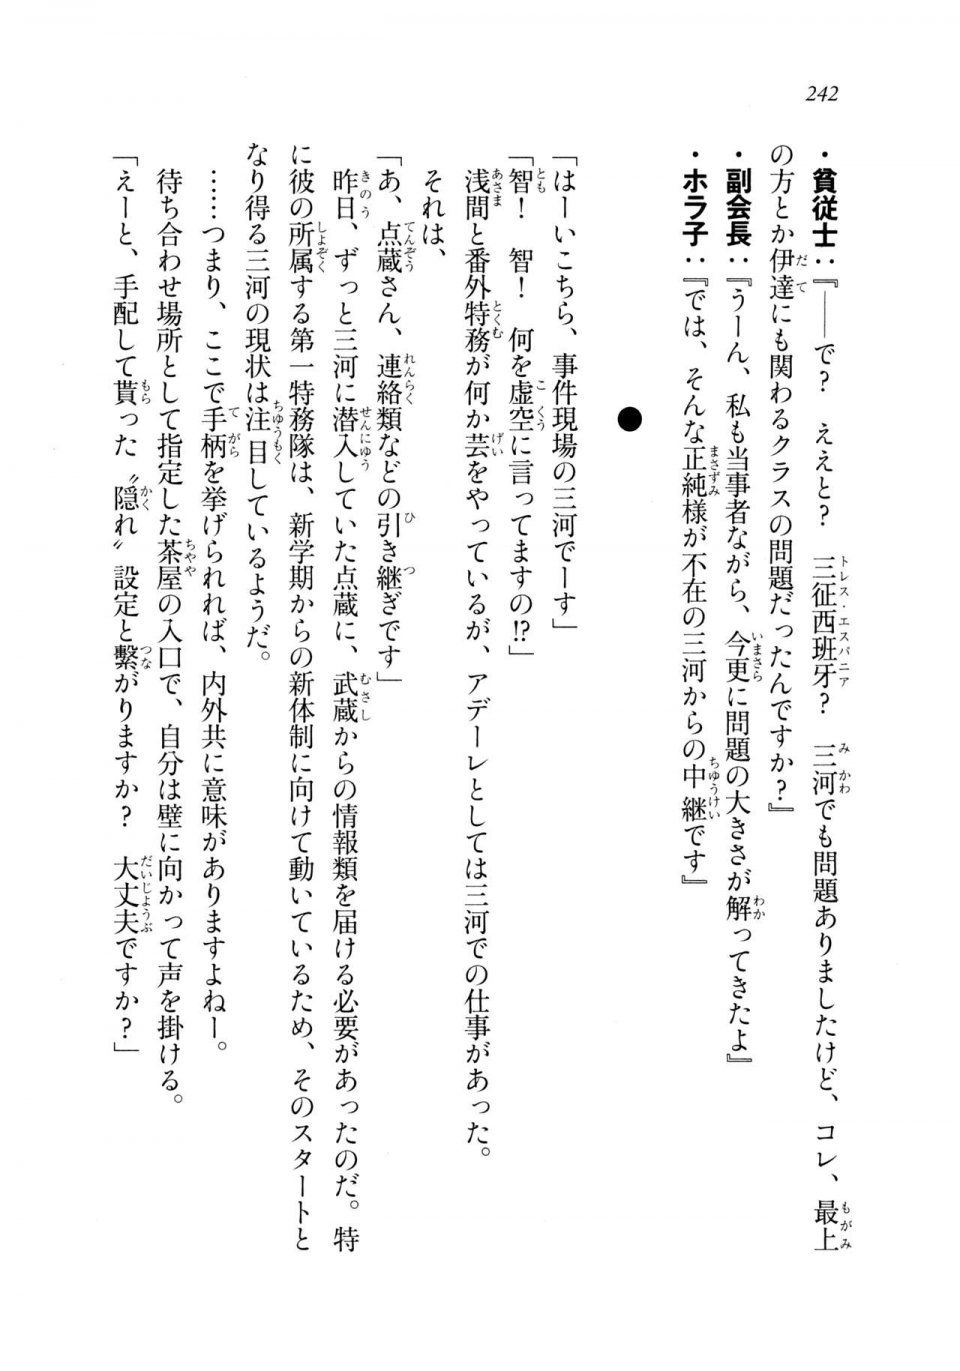 242
・貧従士：『――で？　ええと？　三征西班牙？　三河でも問題ありましたけど、コレ、最上
の方とか伊達にも関わるクラスの問題だったんですか？』
・副会長：『うーん、私も当事者ながら、今更に問題の大きさが解ってきたよ』
・ホラ子：『では、そんな正純様が不在の三河からの中継です』
●
「はーいこちら、事件現場の三河でーす」
「智！　智！　何を虚空に言ってますの!?」
浅間と番外特務が何か芸をやっているが、アデーレとしては三河での仕事があった。
それは、
「あ、点蔵さん、連絡類などの引き継ぎです」
昨日、ずっと三河に潜入していた点蔵に、武蔵からの情報類を届ける必要があったのだ。特
に彼の所属する第一特務隊は、新学期からの新体制に向けて動いているため、そのスタートと
なり得る三河の現状は注目しているようだ。
……つまり、ここで手柄を挙げられれば、内外共に意味がありますよねー。
待ち合わせ場所として指定した茶屋の入口で、自分は壁に向かって声を掛ける。
「えーと、手配して貰った〝隠れ〟設定と繫がりますか？　大丈夫ですか？」